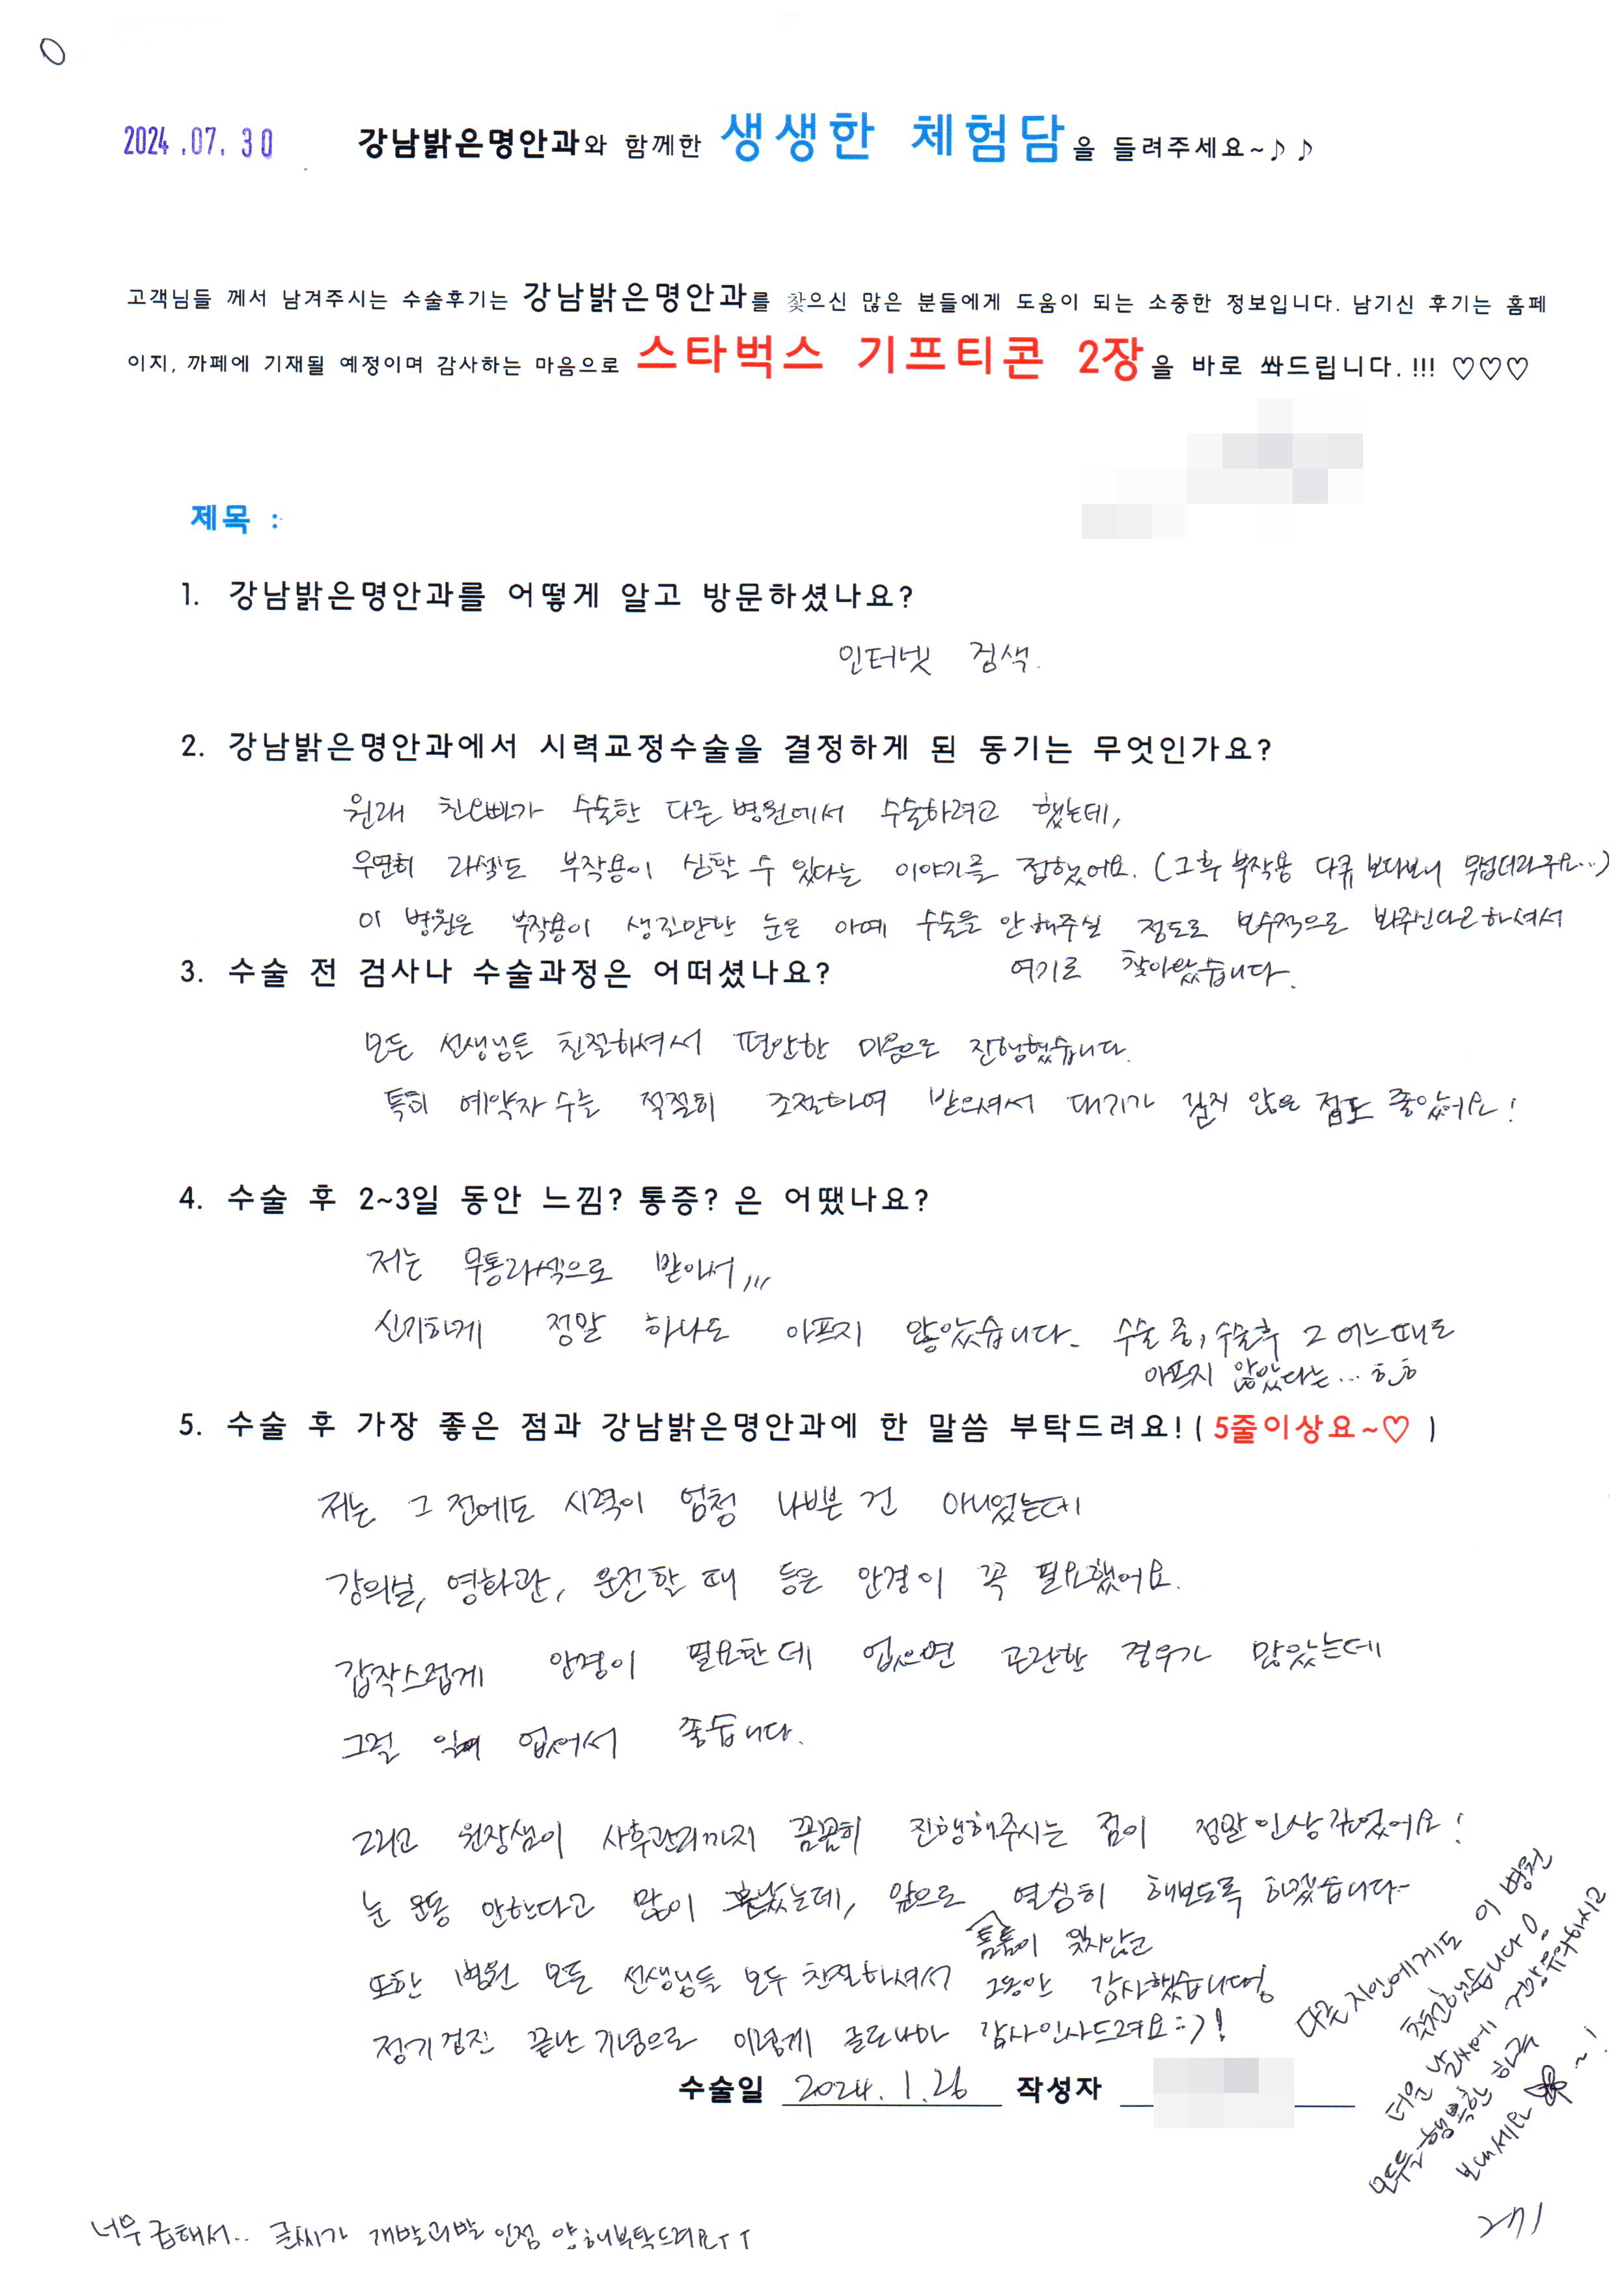 2024.07.30
강남밝은명안과와 함께한 생생한 체험담을 들려주세요~♪♪
고객님들 께서 남겨주시는 수술후기는 강남밝은명안과를 찾으신 많은 분들에게 도움이 되는 소중한 정보입니다. 남기신 후기는 홈페
이지, 까페에 기재될 예정이며 감사하는 마음으로 스타벅스 기프티콘 2장을 바로 쏴드립니다.!!! ♡♡♡
제목 :
1. 강남밝은명안과를 어떻게 알고 방문하셨나요?
인터넷 검색.
2. 강남밝은명안과에서 시력교정수술을 결정하게 된 동기는 무엇인가요?
원래 친오빠가 수술한 다른 병원에서 수술하려고 했는데,
우연히 라섹도 부작용이 심할 수 있다는 이야기를 접했어요. (그 후 부작용 다큐 보다보니 무섭더라구요...)
이 병원은 부작용이 생길만한 눈은 아예 수술을 안 해주실 정도로 보수적으로 봐주신다고 하셔서
여기로 찾아왔습니다.
3. 수술 전 검사나 수술과정은 어떠셨나요?
모든 선생님들 친절하셔서 편안한 마음으로 진행했습니다.
특히 예약자 수를 적절히 조절하여 받으셔서 대기가 길지 않은 점도 좋았어요!
4. 수술 후 2~3일 동안 느낌? 통증? 은 어땠나요?
저는 무통라섹으로 받아서,,,
신기하게 정말 하나도 아프지 않았습니다. 수술 중, 수술후 그 어느때도
아프지 않았다는... ㅎㅎ
5. 수술 후 가장 좋은 점과 강남밝은명안과에 한 말씀 부탁드려요!( 5줄이상요~♡ )
저는 그 전에도 시력이 엄청 나쁜 건 아니었는데
강의실, 영화관, 운전할 때 등은 안경이 꼭 필요했어요.
갑작스럽게 안경이 필요한데 없으면 곤란한 경우가 많았는데
그럴 일이 없어서 좋습니다.
그리고 원장쌤이 사후관리까지 꼼꼼히 진행해주시는 점이 정말 인상 깊었어요!
눈 운동 안한다고 많이 혼났는데, 앞으로 열심히 해보도록 하겠습니다~
틈틈이 잊지않고
또한 병원 모든 선생님들 모두 친절하셔서 그동안 감사했습니다
정기검진 끝난 기념으로 이렇게 글로나마 감사인사드려요 :)!
다른 지인에게도 이 병원
추천했습니다
더운 날씨에 건강유의하시고
모두들 행복한 하루
보내세요 ~!
수술일 2024. 1. 26 작성자
너무 급해서.. 글씨가 개발괴발 인점 양해부탁드려요ㅜㅜ